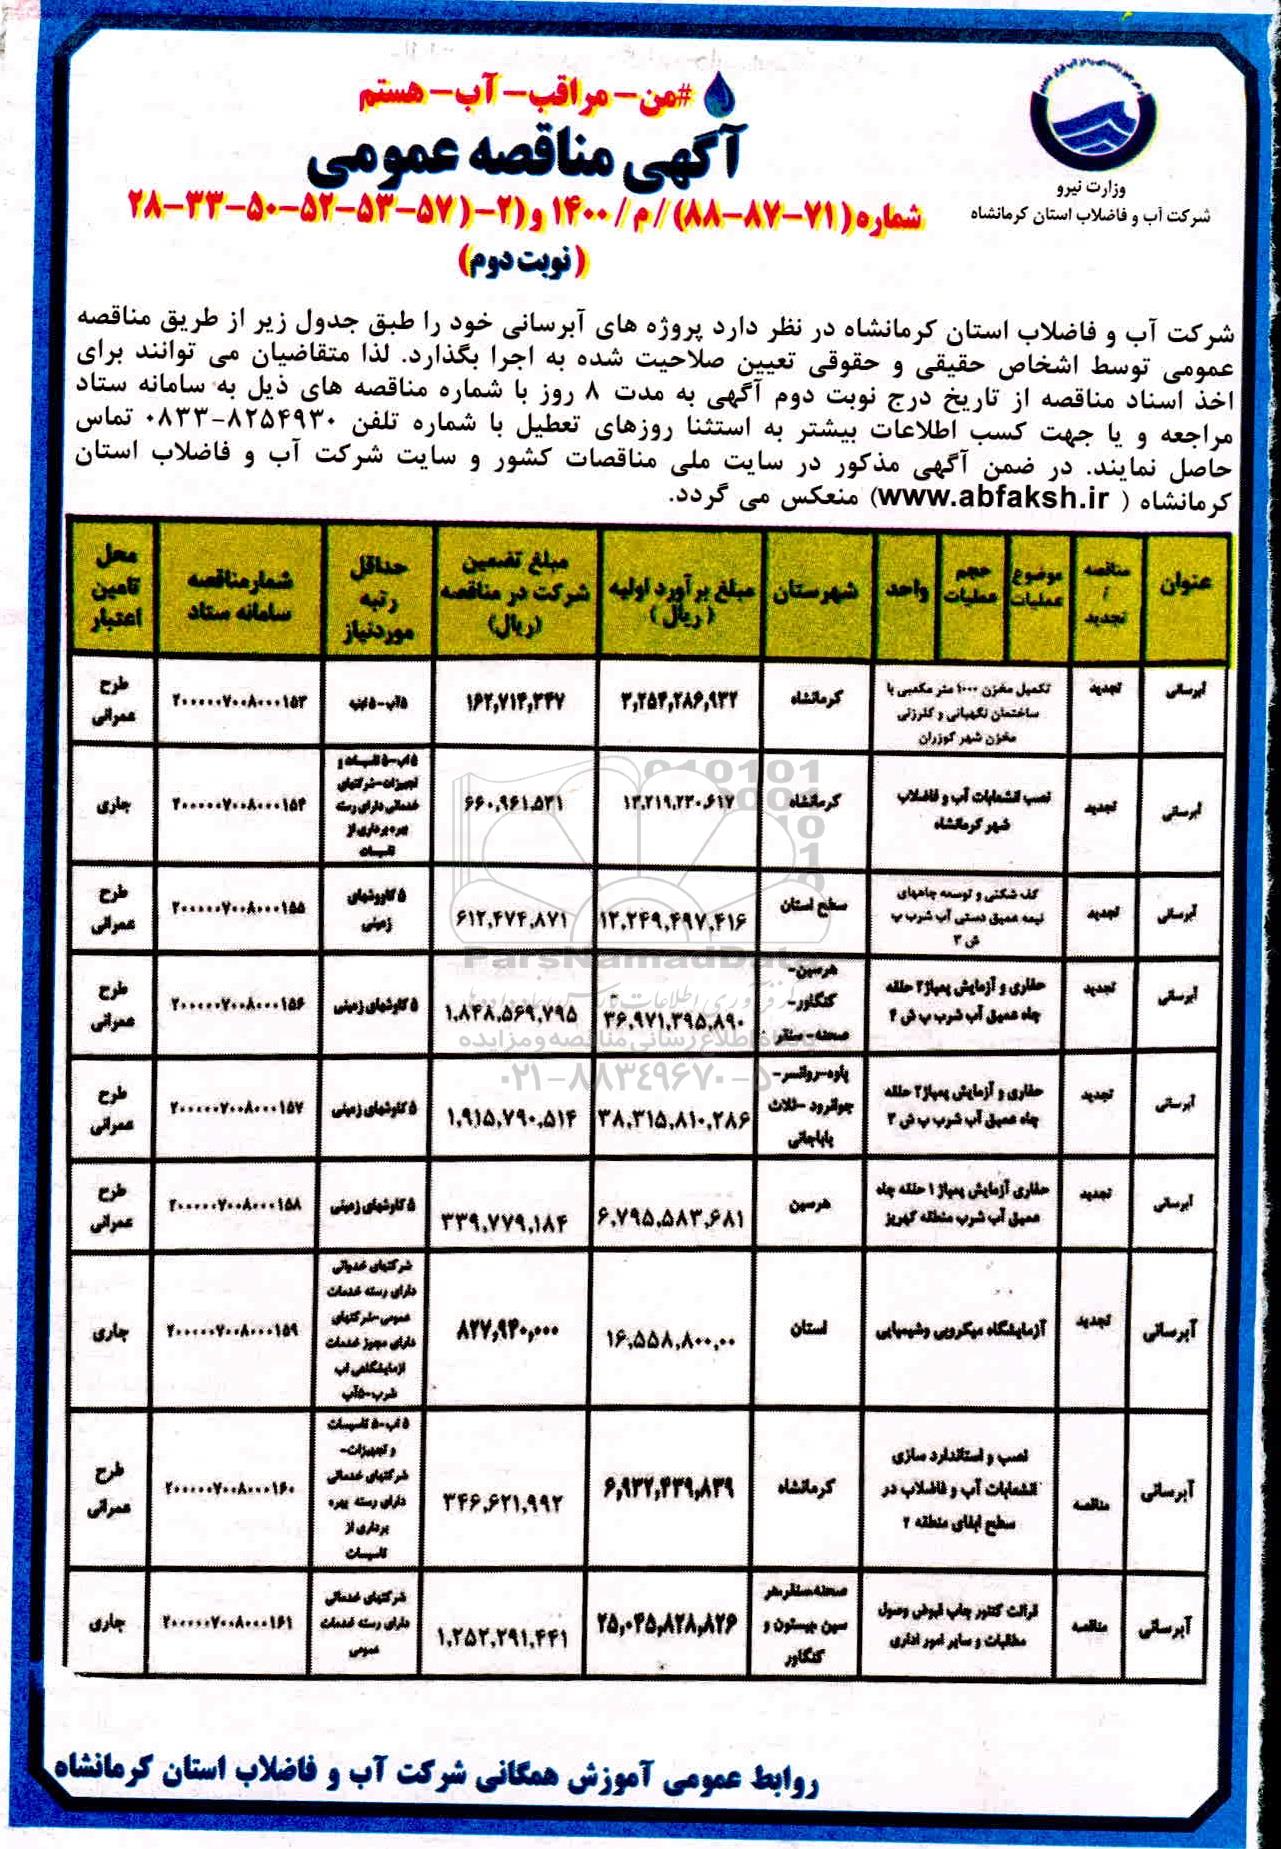 #من- مراقب- آب- هستم
آگهی مناقصه عمومی
شماره (۷۱-۸۷-۸۸)/م/۱۴۰۰ و(۲-(۵۷-۵۳-۵۲-۵۰-۳۳-۲۸
(نوبت دوم)
وزارت نیرو
شرکت آب و فاضلاب استان کرمانشاه
شرکت آب و فاضلاب استان کرمانشاه در نظر دارد پروژه های آبرسانی خود را طبق جدول زیر از طریق مناقصه
عمومی توسط اشخاص حقیقی و حقوقی تعیین صلاحیت شده به اجرا بگذارد. لذا متقاضیان می توانند برای
اخذ اسناد مناقصه از تاریخ درج نوبت دوم آگهی به مدت ۸ روز با شماره مناقصه های ذیل به سامانه ستاد
مراجعه و یا جهت کسب اطلاعات بیشتر به استثنا روزهای تعطیل با شماره تلفن ۸۲۵۴۹۳۰-۰۸۳۳ تماس
حاصل نمایند. در ضمن آگهی مذکور در سایت ملی مناقصات کشور و سایت شرکت آب و فاضلاب استان
کرمانشاه ( www.abfaksh.ir) منعکس می گردد.
عنوان | مناقصه / تجدید | موضوع عملیات | حجم عملیات | واحد | شهرستان | مبلغ برآورد اولیه (ریال) | مبلغ تضمین شرکت در مناقصه (ریال) | حداقل رتبه موردنیاز | شمارمناقصه سامانه ستاد | محل تامین اعتبار
آبرسانی | تجدید | تکمیل مخزن ۱۰۰۰ متر مکعبی با ساختمان نگهبانی و کلرزنی مخزن شهر کوزران | کرمانشاه | ۳,۲۵۴,۲۸۶,۹۳۲ | ۱۶۲,۷۱۴,۳۴۷ | ۵آب-۵ابنیه | ۲۰۰۰۰۰۷۰۰۸۰۰۰۱۵۳ | طرح عمرانی
آبرسانی | تجدید | نصب انشعابات آب و فاضلاب شهر کرمانشاه | کرمانشاه | ۱۳,۲۱۹,۲۳۰,۶۱۷ | ۶۶۰,۹۶۱,۵۳۱ | ۵آب-۵تاسیسات و تجهیزات-شرکتهای خدماتی دارای رسته بهره برداری از تاسیسات | ۲۰۰۰۰۰۷۰۰۸۰۰۰۱۵۴ | جاری
آبرسانی | تجدید | کف شکنی و توسعه چاههای نیمه عمیق دستی آب شرب ب ش ۳ | سطح استان | ۱۲,۲۴۹,۴۹۷,۴۱۶ | ۶۱۲,۴۷۴,۸۷۱ | ۵ کاووشهای زمینی | ۲۰۰۰۰۰۷۰۰۸۰۰۰۱۵۵ | طرح عمرانی
آبرسانی | تجدید | حفاری و آزمایش پمپاژ۲ حلقه چاه عمیق آب شرب ب ش ۴ | هرسین- کنگاور- صحنه-سنقر | ۳۶,۹۷۱,۳۹۵,۸۹۰ | ۱,۸۴۸,۵۶۹,۷۹۵ | ۵ کاوشهای زمینی | ۲۰۰۰۰۰۷۰۰۸۰۰۰۱۵۶ | طرح عمرانی
آبرسانی | تجدید | حفاری و آزمایش پمپاژ۲ حلقه چاه عمیق آب شرب ب ش ۳ | پاوه-روانسر- جوانرود -ثلاث باباجانی | ۳۸,۳۱۵,۸۱۰,۲۸۶ | ۱,۹۱۵,۷۹۰,۵۱۴ | ۵ کاوشهای زمینی | ۲۰۰۰۰۰۷۰۰۸۰۰۰۱۵۷ | طرح عمرانی
آبرسانی | تجدید | حفاری آزمایش پمپاژ ۱ حلقه چاه عمیق آب شرب منطقه کهریز | هرسین | ۶,۷۹۵,۵۸۳,۶۸۱ | ۳۳۹,۷۷۹,۱۸۴ | ۵ کاوشهای زمینی | ۲۰۰۰۰۰۷۰۰۸۰۰۰۱۵۸ | طرح عمرانی
آبرسانی | تجدید | آزمایشگاه میکروبی وشیمیایی | استان | ۱۶,۵۵۸,۸۰۰,۰۰ | ۸۲۷,۹۴۰,۰۰۰ | شرکتهای خدماتی دارای رسته خدمات عمومی-شرکتهای دارای مجوز خدمات آزمایشگاهی آب شرب-۵آب | ۲۰۰۰۰۰۷۰۰۸۰۰۰۱۵۹ | جاری
آبرسانی | مناقصه | نصب و استاندارد سازی انشعابات آب و فاضلاب در سطح ابفای منطقه ۲ | کرمانشاه | ۶,۹۳۲,۴۳۹,۸۳۹ | ۳۴۶,۶۲۱,۹۹۲ | ۵ آب-۵ تاسیسات و تجهیزات- شرکتهای خدماتی دارای رسته بهره برداری از تاسیسات | ۲۰۰۰۰۰۷۰۰۸۰۰۰۱۶۰ | طرح عمرانی
آبرسانی | مناقصه | قرائت کنتور چاپ قبوض وصول مطالبات و سایر امور اداری | صحنه،سنقر،هر سین ،بیستون و کنگاور | ۲۵,۰۴۵,۸۲۸,۸۲۶ | ۱,۲۵۲,۲۹۱,۴۴۱ | شرکتهای خدماتی دارای رسته خدمات عمومی | ۲۰۰۰۰۰۷۰۰۸۰۰۰۱۶۱ | جاری
ParsNamadData
پایگاه اطلاع رسانی مناقصه و مزایده
۰۲۱-۸۸۳۴۹۶۷۰-۵
روابط عمومی آموزش همگانی شرکت آب و فاضلاب استان کرمانشاه